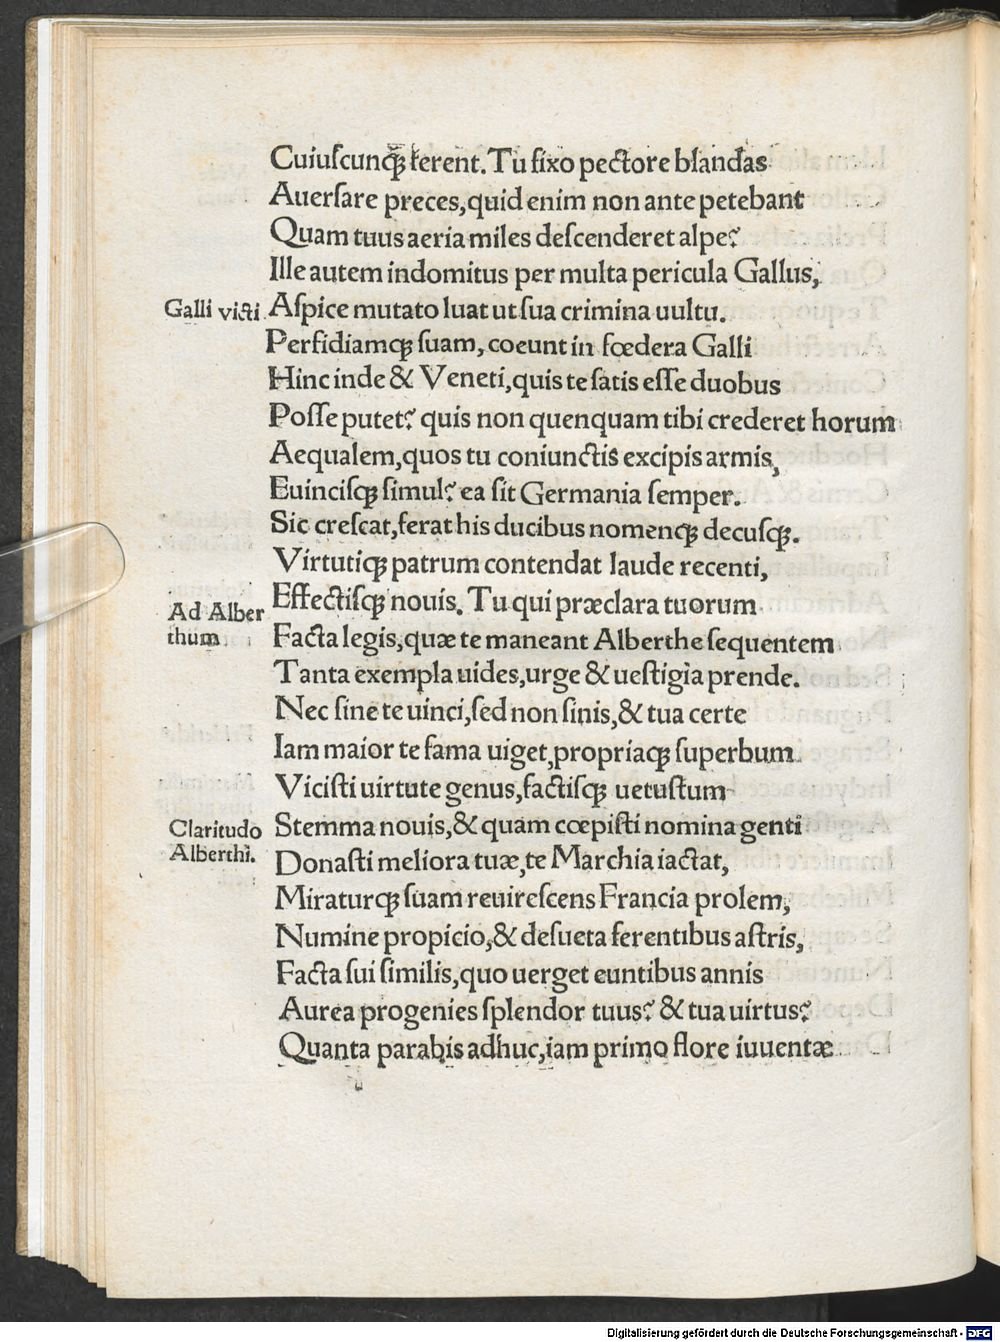 Cuiuſcunqꝫ ferent. Tu fixo pectore blandas
Auerſare preces, quid enim non ante petebant
Quam tuus aeria miles deſcenderet alpe?
Ille autem indomitus per multa pericula Gallus,
Galli victi
Aſpice mutato luat ut ſua crimina uultu.
Perfidiamqꝫ ſuam, coeunt in fœdera Galli
Hinc inde & Veneti, quis te ſatis eſſe duobus
Poſſe putet? quis non quenquam tibi crederet horum
Aequalem, quos tu coniunctis excipis armis,
Euinciſqꝫ ſimul? ea ſit Germania ſemper.
Sic creſcat, ferat his ducibus nomenqꝫ decuſqꝫ.
Virtutiqꝫ patrum contendat laude recenti,
Effectiſqꝫ nouis. Tu qui præclara tuorum
Ad Alber
thum
Facta legis, quæ te maneant Alberthe ſequentem
Tanta exempla uides, urge & ueſtigia prende.
Nec ſine te uinci, ſed non ſinis, & tua certe
Iam maior te fama uiget, propriaqꝫ ſuperbum
Viciſti uirtute genus, factiſqꝫ uetuſtum
Claritudo
Alberthi.
Stemma nouis, & quam cœpiſti nomina genti
Donaſti meliora tuæ, te Marchia iactat,
Miraturqꝫ ſuam reuireſcens Francia prolem,
Numine propicio, & deſueta ferentibus aſtris,
Facta ſui ſimilis, quo uerget euntibus annis
Aurea progenies ſplendor tuus? & tua uirtus?
Quanta parabis adhuc, iam primo flore iuuentæ
Digitalisierung gefördert durch die Deutsche Forschungsgemeinschaft - DFG